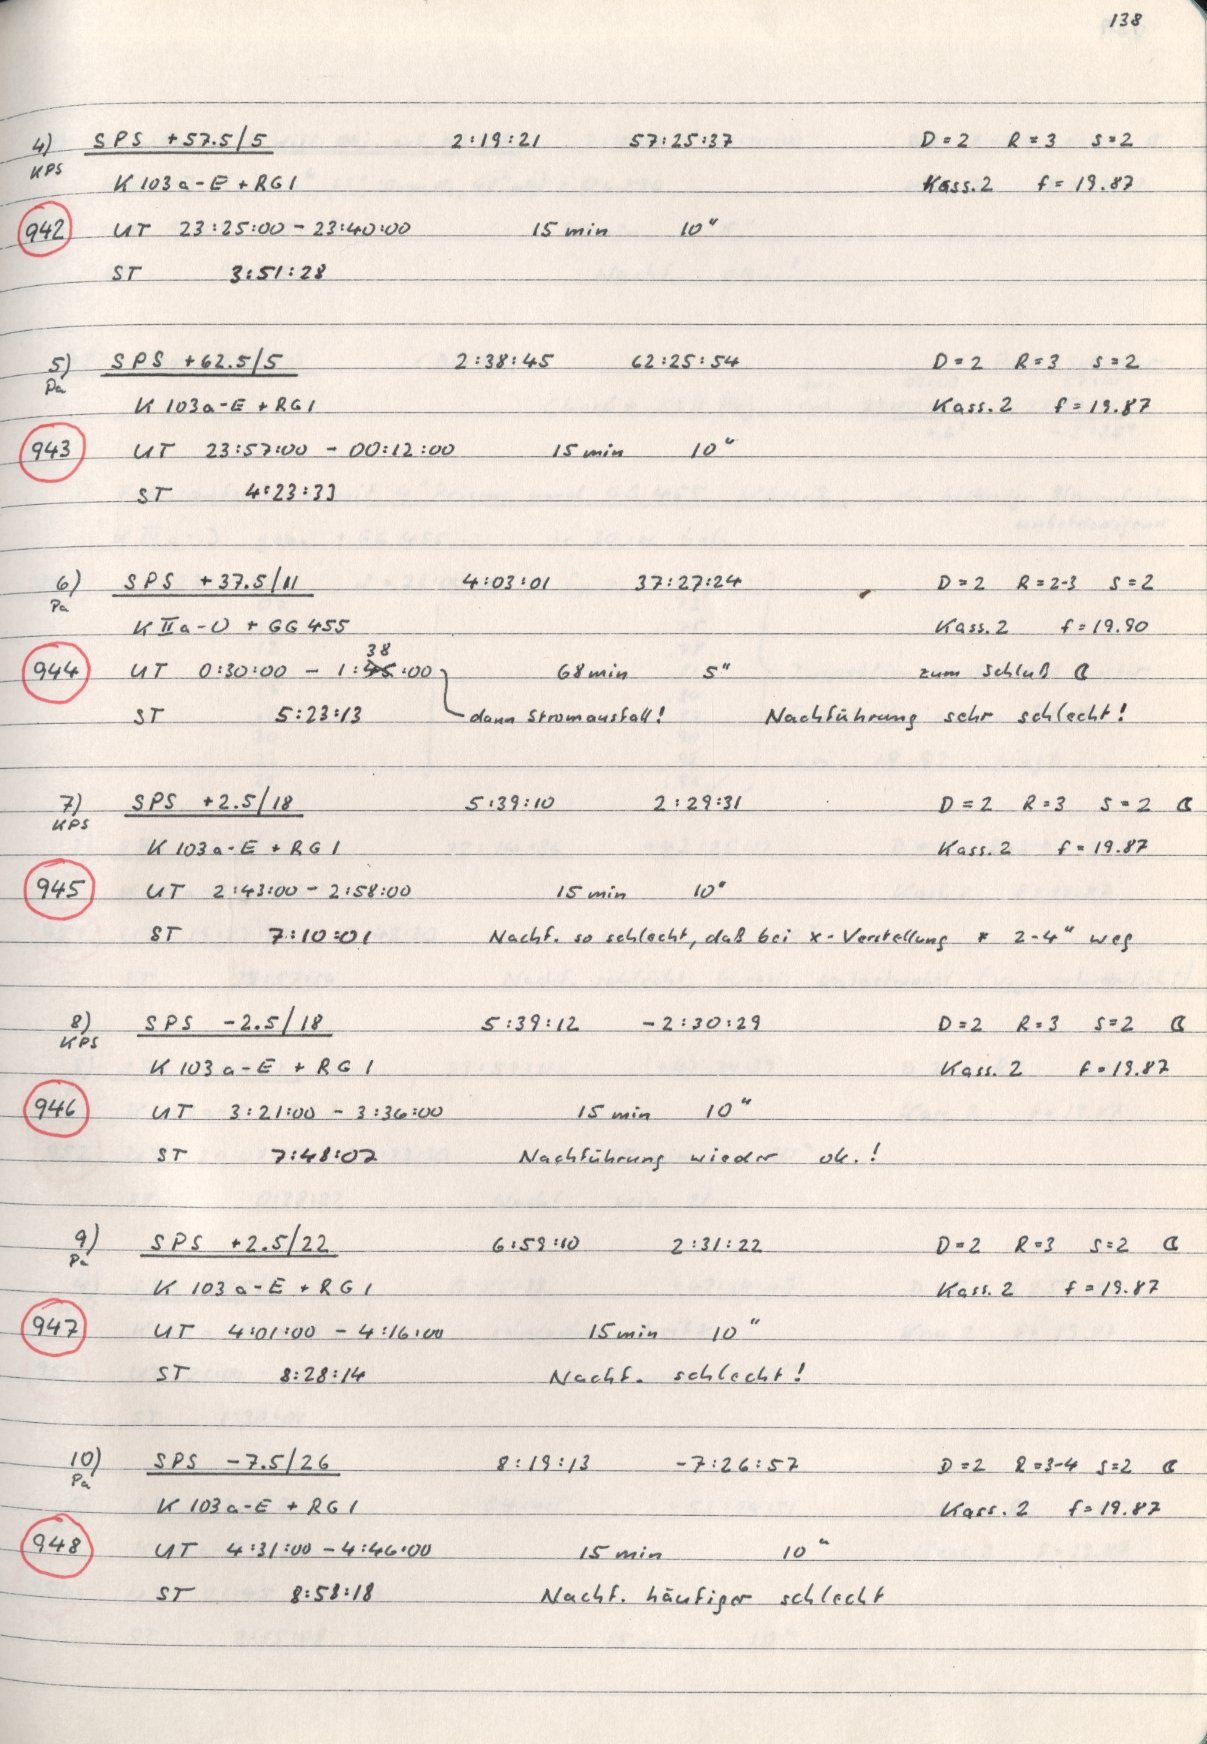 138
4) SPS +57.5/5 2:19:21 57:25:37 D=2 R=3 S=2
KPS K 103a-E + RG1 Kass.2 f=19.87
942 UT 23:25:00 - 23:40:00 15 min 10"
ST 3:51:28
5) SPS +62.5/5 2:38:45 62:25:54 D=2 R=3 S=2
Pa K 103a-E + RG1 Kass.2 f=19.87
943 UT 23:57:00 - 00:12:00 15 min 10"
ST 4:23:33
6) SPS +37.5/11 4:03:01 37:27:24 D=2 R=2-3 S=2
Pa K IIa-O + GG 455 Kass.2 f=19.90
38
944 UT 0:30:00 - 1:45:00 68 min 5" zum Schluß ☾
ST 5:23:13 dann Stromausfall! Nachführung sehr schlecht!
7) SPS +2.5/18 5:39:10 2:29:31 D=2 R=3 S=2 ☾
KPS K 103a-E + RG1 Kass.2 f=19.87
945 UT 2:43:00 - 2:58:00 15 min 10"
ST 7:10:01 Nachf. so schlecht, daß bei x-Verstellung * 2-4" weg
8) SPS -2.5/18 5:39:12 -2:30:29 D=2 R=3 S=2 ☾
KPS K 103a-E + RG1 Kass.2 f=19.87
946 UT 3:21:00 - 3:36:00 15 min 10"
ST 7:48:07 Nachführung wieder ok.!
9) SPS +2.5/22 6:59:10 2:31:22 D=2 R=3 S=2 ☾
Pa K 103a-E + RG1 Kass.2 f=19.87
947 UT 4:01:00 - 4:16:00 15 min 10"
ST 8:28:14 Nachf. schlecht!
10) SPS -7.5/26 8:19:13 -7:26:57 D=2 R=3-4 S=2 ☾
Pa K 103a-E + RG1 Kass.2 f=19.87
948 UT 4:31:00 - 4:46:00 15 min 10"
ST 8:58:18 Nachf. häufiger schlecht